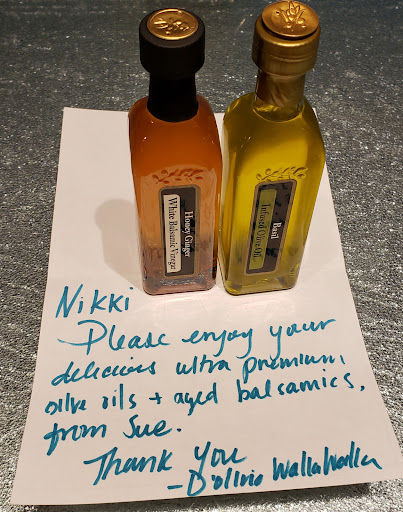 Honey Ginger
White Balsamic Vinegar
Basil
Infused Olive Oil
Nikki
Please enjoy your
delicious ultra premium,
olive oils + aged balsamics,
from Sue.
Thank You
-D'olivo WallaWalla